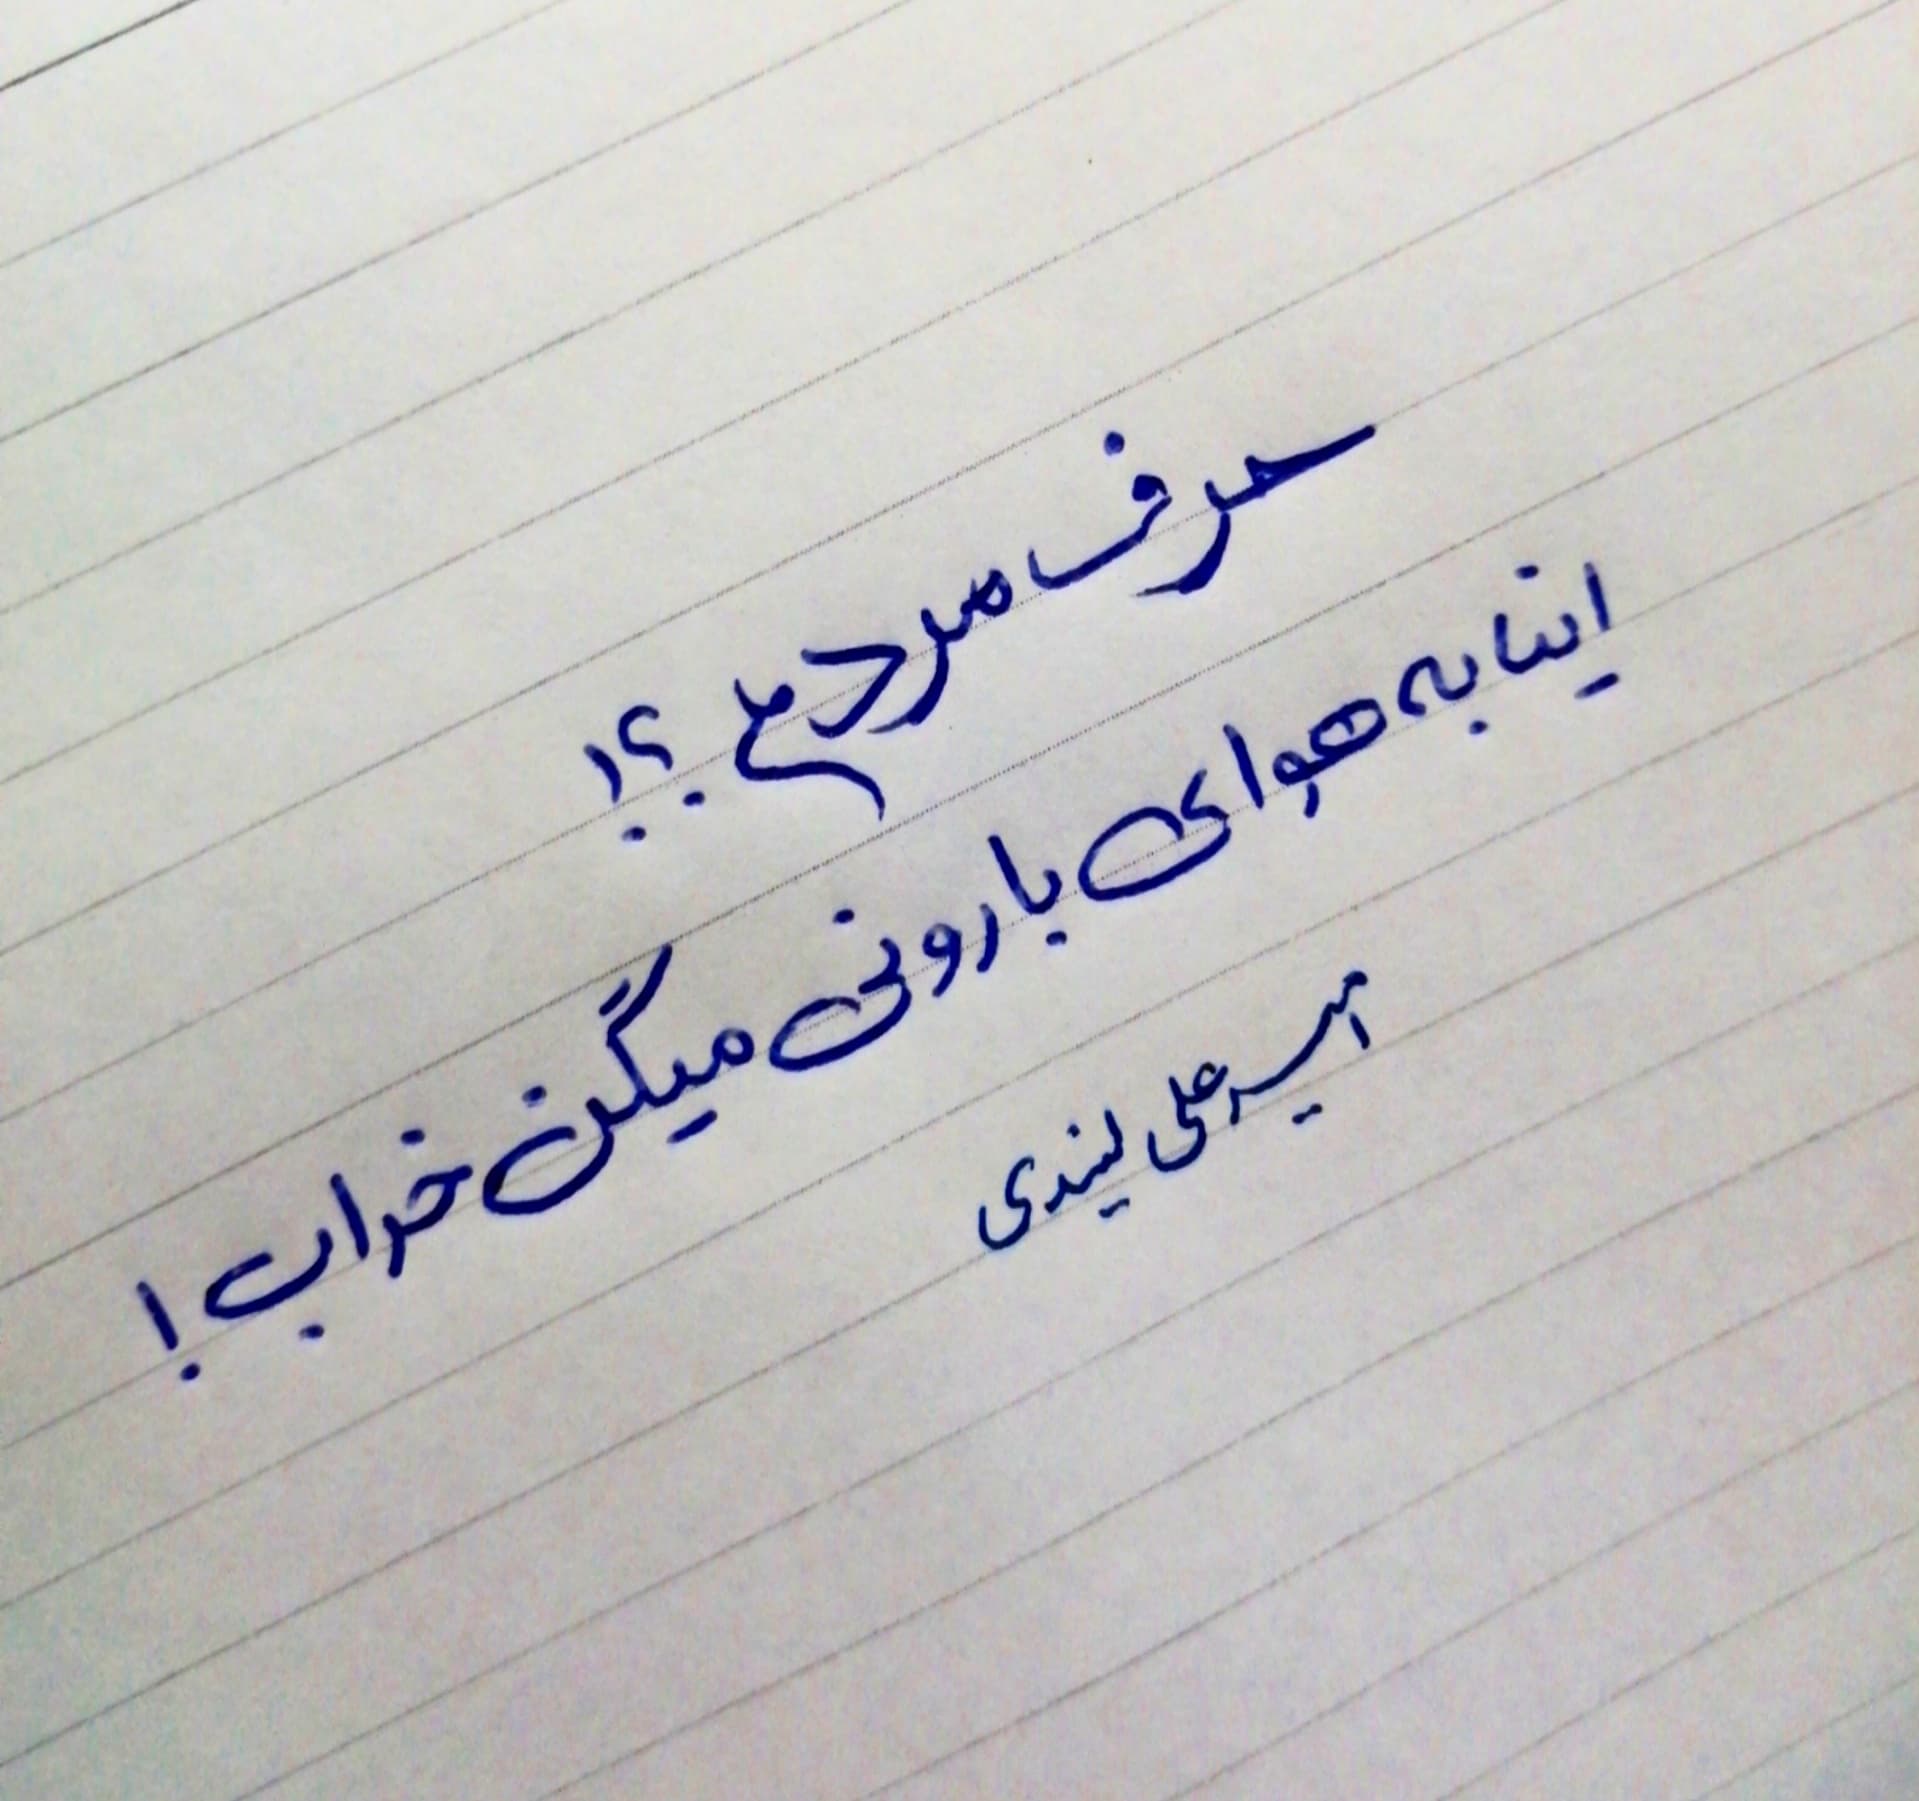 حرف مردم ؟!
اینا به هوای بارونی میگن خراب !
امیرعلی لیندی